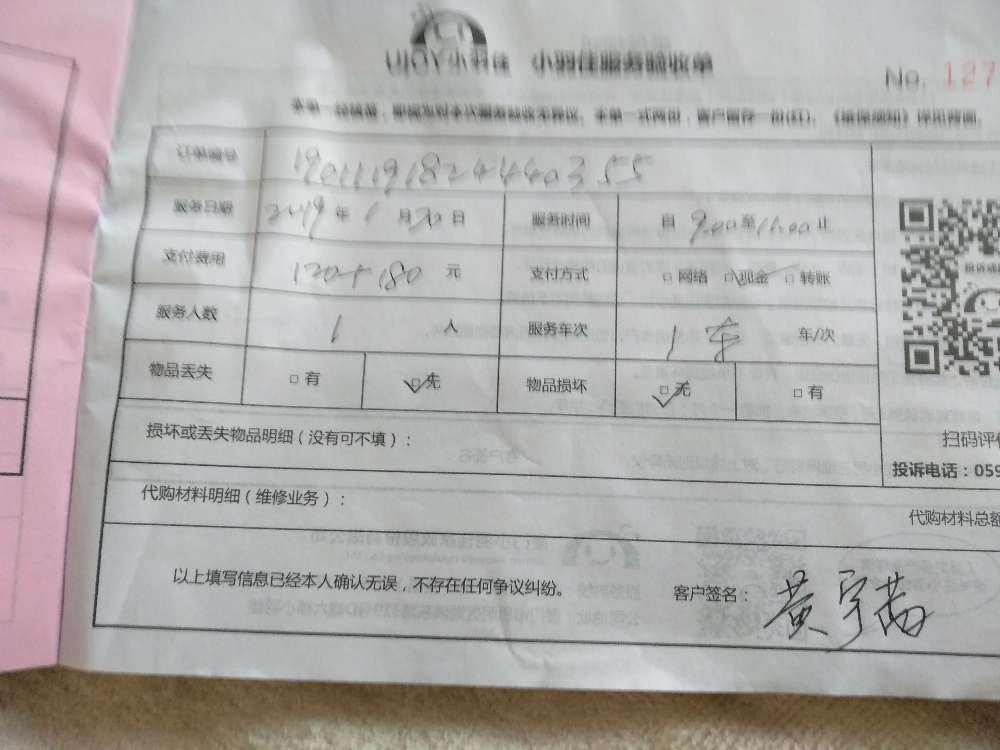 UJOY小羽佳 小羽佳服务验收单
No. 127
本单一经签署，即视为对本次服务验收无异议。本单一式两份，客户留存一份(红)。
订单编号 19011918244440355
服务日期 2019 年 1 月 日 服务时间 自 9:00 至 11:00 止
支付费用 120+180 元 支付方式 □网络 ☑现金 □转账
服务人数 1 人 服务车次 1车 车/次
物品丢失 □有 ☑无 物品损坏 ☑无 □有
损坏或丢失物品明细（没有可不填）：
扫码评
投诉电话：059
代购材料明细（维修业务）：
代购材料总额
以上填写信息已经本人确认无误，不存在任何争议纠纷。 客户签名： 黄宇